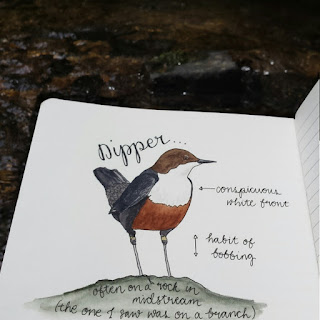 Dipper...
conspicuous
white front
habit of
bobbing
often on a rock in
midstream
(the one I saw was on a branch)